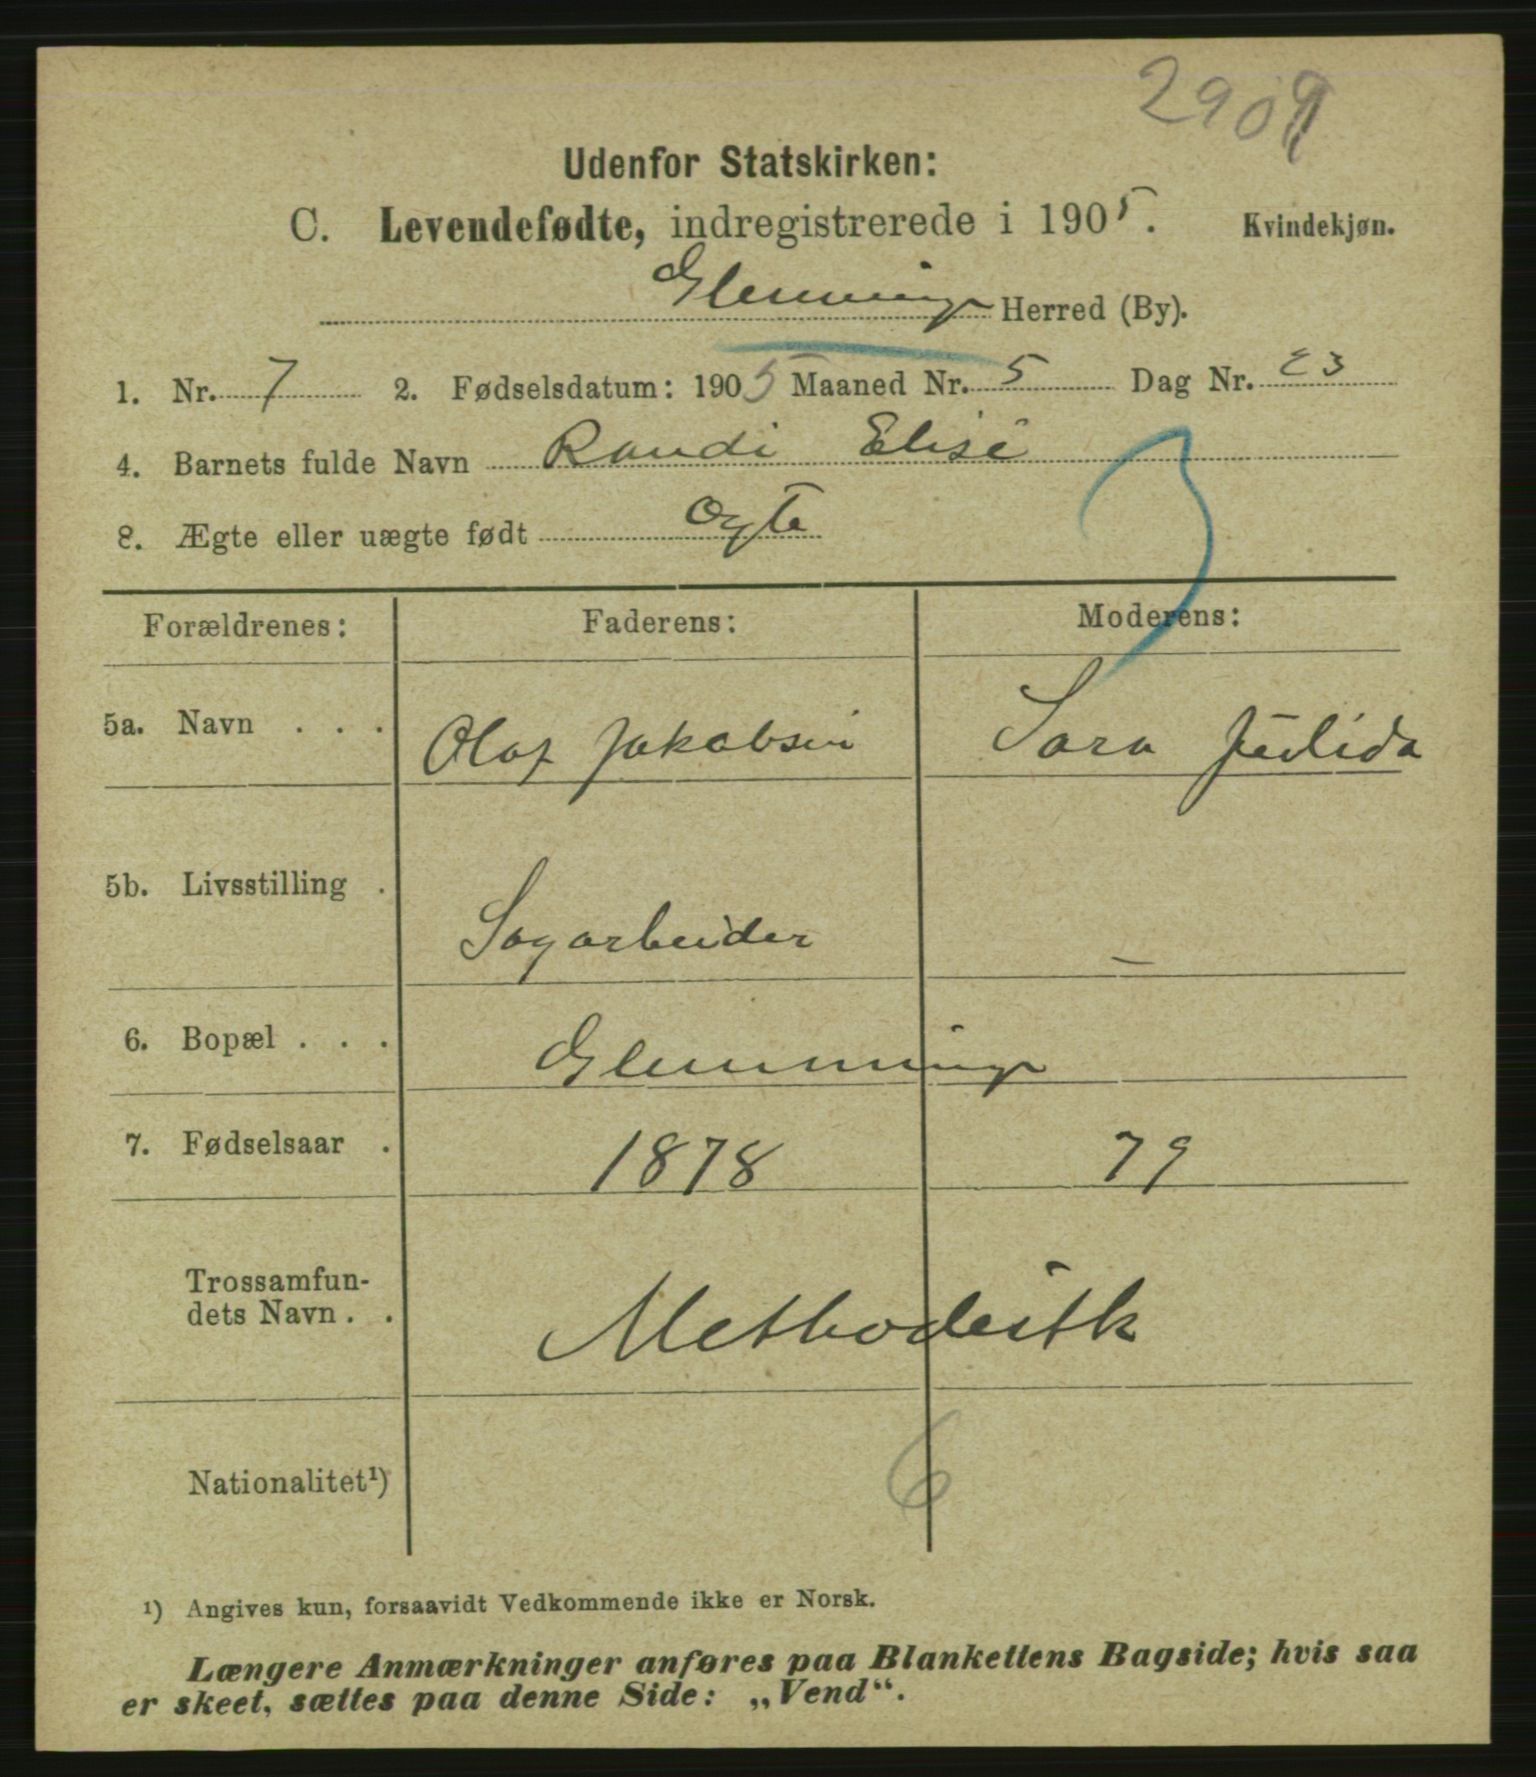 290
Udenfor Statskirken:
C. Levendefødte, indregistrerede i 1905. Kvindekjøn.
Glemminge Herred (By).
1. Nr. 7 2. Fødselsdatum: 1905 Maaned Nr. 5 Dag Nr. 23
4. Barnets fulde Navn Randi Elise
8. Ægte eller uægte født ægte
Forældrenes: Faderens: Moderens:
5a. Navn . . . Olaf Jakobsen Sara Julida
5b. Livsstilling . Sagarbeider –
6. Bopæl . . . Glemminge
7. Fødselsaar . 1878 79
Trossamfun-
dets Navn . . Methodistk
Nationalitet¹) 6
¹) Angives kun, forsaavidt Vedkommende ikke er Norsk.
Længere Anmærkninger anføres paa Blankettens Bagside; hvis saa
er skeet, sættes paa denne Side: „Vend“.